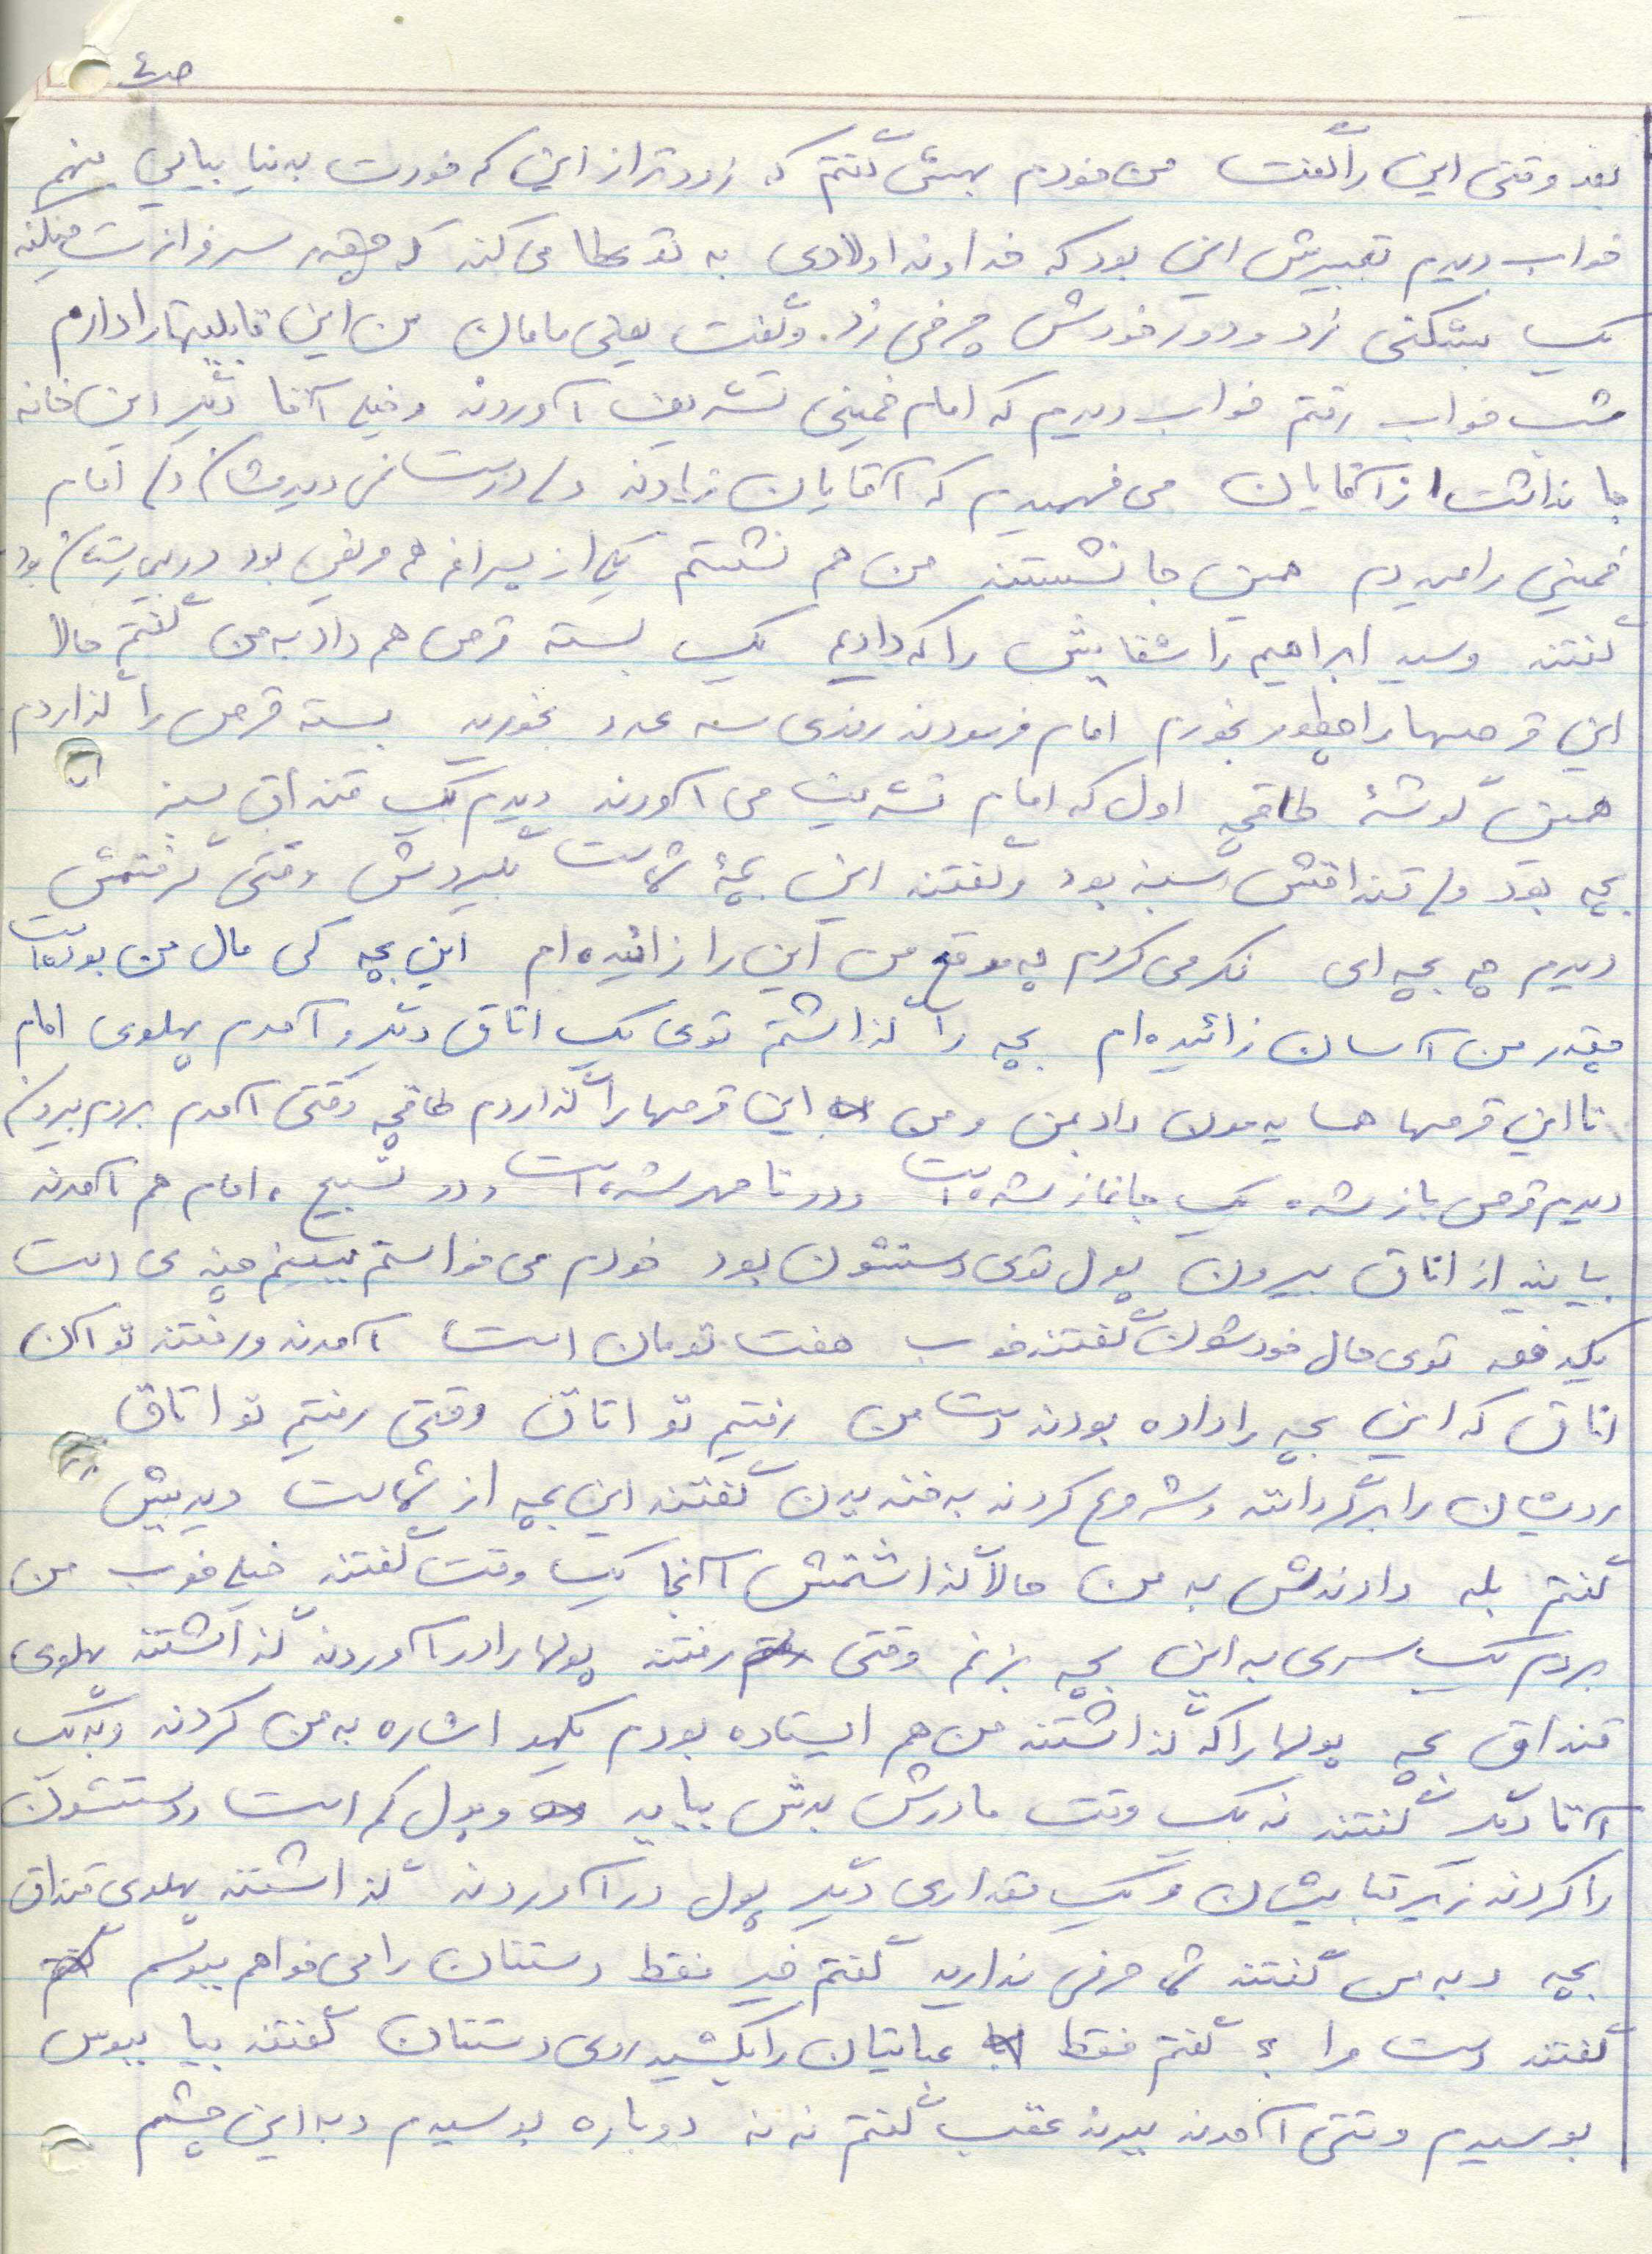 ص ٤
بعد وقتی این را گفت من خودم بهش گفتم که زودتر از این که خودت به دنیا بیایی منهم
خواب دیدم تعبیرش این بود که خداوند اولادی به تو عطا می کند که چقدر سرفرازت میکنه
یک بشکنی زد و دور خودش چرخی زد. و گفت یعنی مامان من این قابلیتها را دارم
شب خواب رفتم خواب دیدم که امام خمینی تشریف آوردند و خیلی آقا دیگر این خانه
جا نداشت از آقایان می فهمیدم که آقایان زیادند ولی درست نمی دیدمشان ولی امام
خمینی را می دیدم همین جا نشستند من هم نشستم یکی از پسرانم هم مریض بود در بیمارستان بود
گفتند و سید ابراهیم را شفایش را که دادیم یک بسته قرص هم داد به من گفتم حالا
این قرصها را چطور بخورم امام فرمودند روزی سه عدد بخورید بسته قرص را گذاردم
همین گوشهٔ طاقچه اول که امام تشریف می آورند دیدم یک قنداق سبز
بچه بود ولی قنداقش سبز بود و گفتند این بچهٔ شماست بگیردش وقتی گرفتمش
دیدم چه بچه ای فکر می کردم چه موقع من این را زائیده ام این بچه کی مال من بوده است
چقدر من آسان زائیده ام بچه را گذاشتم توی یک اتاق دیگر و آمدم پهلوی امام
تا این قرصها همسایه مون داد بمن و من این قرصها را گذاردم طاقچه وقتی آمدم بروم بیرون
دیدم قرص باز شده یک جانماز شده است و دو تا مهر شده است و دو تسبیح، امام هم آمدند
بیایند از اتاق بیرون پول توی دستشون بود خودم می خواستم ببینم چند ی است
یکدفعه توی حال خودشون گفتند خوب هفت تومان است آمدند و رفتند تو اکن
اتاق که این بچه را داده بودند دست من رفتیم تو اتاق وقتی رفتیم تو اتاق
رویشان را برگرداند و شروع کردند به خندیدن گفتند این بچه از شماست دیدیش
گفتم بله دادندش به من حالا گذاشتمش آنجا یک وقت گفتند خیلی خوب من
بروم یک سری به این بچه بزنم وقتی رفتند پولها را درآوردند گذاشتند پهلوی
قنداق بچه پولها را که گذاشتند من هم ایستاده بودم یکهو اشاره به من کردند و به یک
آقا دیگر گفتند نه یک وقت مادرش بدش بیاید و پول کم است و دستشون
را کردند زیر قبایشان و یک مقداری دیگر پول درآوردند گذاشتند پهلوی قنداق
بچه و به من گفتند شما حرفی ندارید گفتم خیر فقط دستتان را می خواهم ببوسم
گفتند دست مرا؟ گفتم فقط عبایتان را بکشید روی دستتان گفتند بیا ببوس
بوسیدم وقتی آمدند ببرند عقب گفتم نه نه دوباره بوسیدم و به این چشم